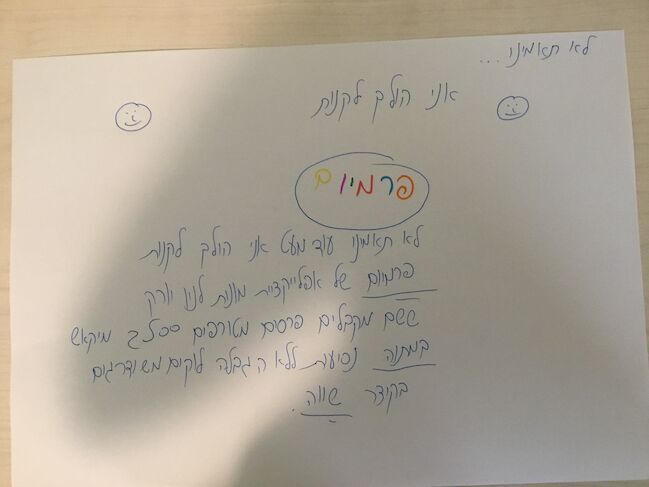 לא תאמינו...
אני הולך לקנות
פרמיום
לא תאמינו עוד מעט אני הולך לקנות
פרמיום של אפליקציית מונות לניו יורק
ששם מקבלים פרסים מטורפים
במתנה נסיעות ללא הגבלה לוקים משודרגים
בקיצר שווה.